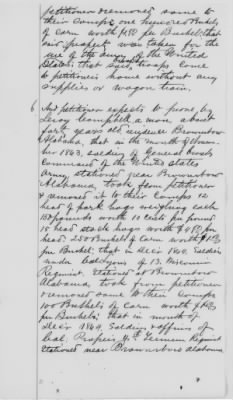 petitioner removed same to
their camps one hundred Bushels
of corn worth $1.50 per Bushel, that
said property was taken for the
use of the Army of the United
States that said troops came
to petitioners home without any
supplies or wagon train.
6 And petitioner expects to prove by
Leroy Campbell a man about
forty years old residence Brownsboro
Alabama, that in the month of
1863, soldiers of General
Command of the United States
Army, stationed near Brownsboro
Alabama, took from petitioner
& removed it to their Camps 12
head of pork hogs weighing each
150 pounds worth 10 cents per pound
15 head stock hogs worth $ per
head. 250 Bushels of Corn worth
per Bushel, that in Decr. 1864, Soldiers
under Col Lyons of 13. Wisconsin
Regiment. Stationed at Brownsboro
Alabama, took from petitioner
& removed same to their Camps
100 Bushels of Corn worth
per Bushel. that in month of
Decr 1864, Soldiers & officers of
Col. 4th Regiment
Stationed near Brownsboro Alabama